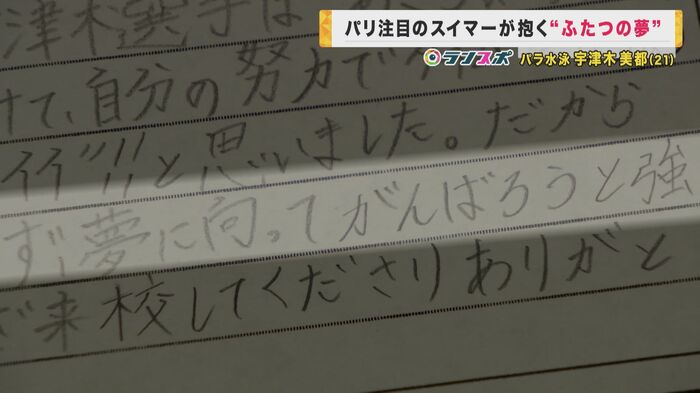 パリ注目のスイマーが抱く“ふたつの夢”
ランスポ
パラ水泳 宇津木 美都(21)
津木選手は
けて、自分の努力で
と思いました。だから
ず夢に向ってがんばろうと強
来校してくださりありがと